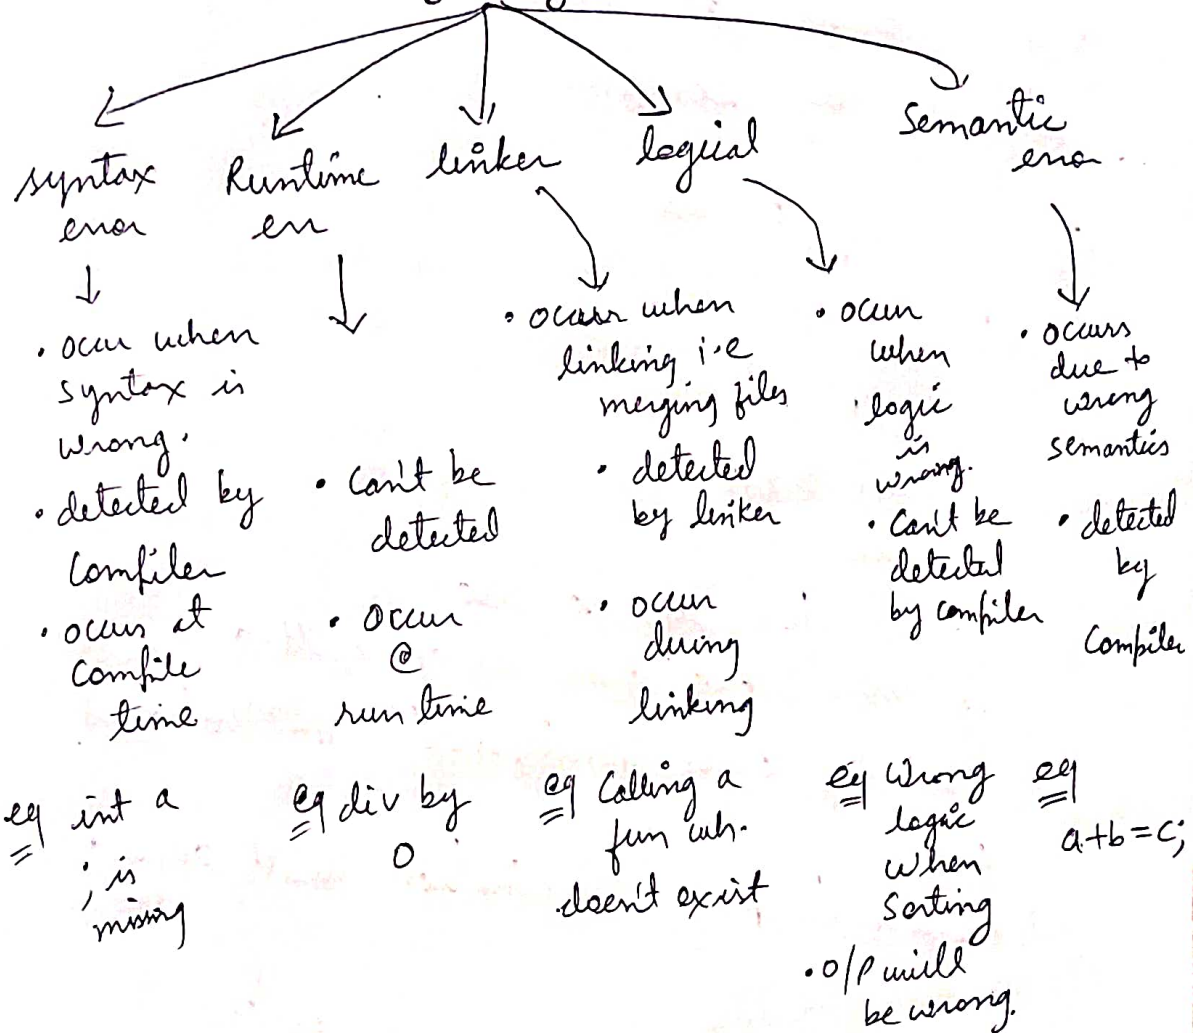 syntax
error
↓
• occur when
syntax is
wrong.
• detected by
Compiler
• occurs at
compile
time
eg int a
; is
missing
Runtime
err
• Can't be
detected
• Occur
@
run time
eg div by
0
linker
• occur when
linking i.e
merging files
• detected
by linker
• occur
during
linking
eg Calling a
fun wh.
doesn't exist
logical
• occur
when
logic
is
wrong.
• Can't be
detected
by compiler
eg Wrong
logic
when
Sorting
• O/P will
be wrong.
Semantic
error
• occurs
due to
wrong
semantics
• detected
by
Compiler
eg
a+b=c;